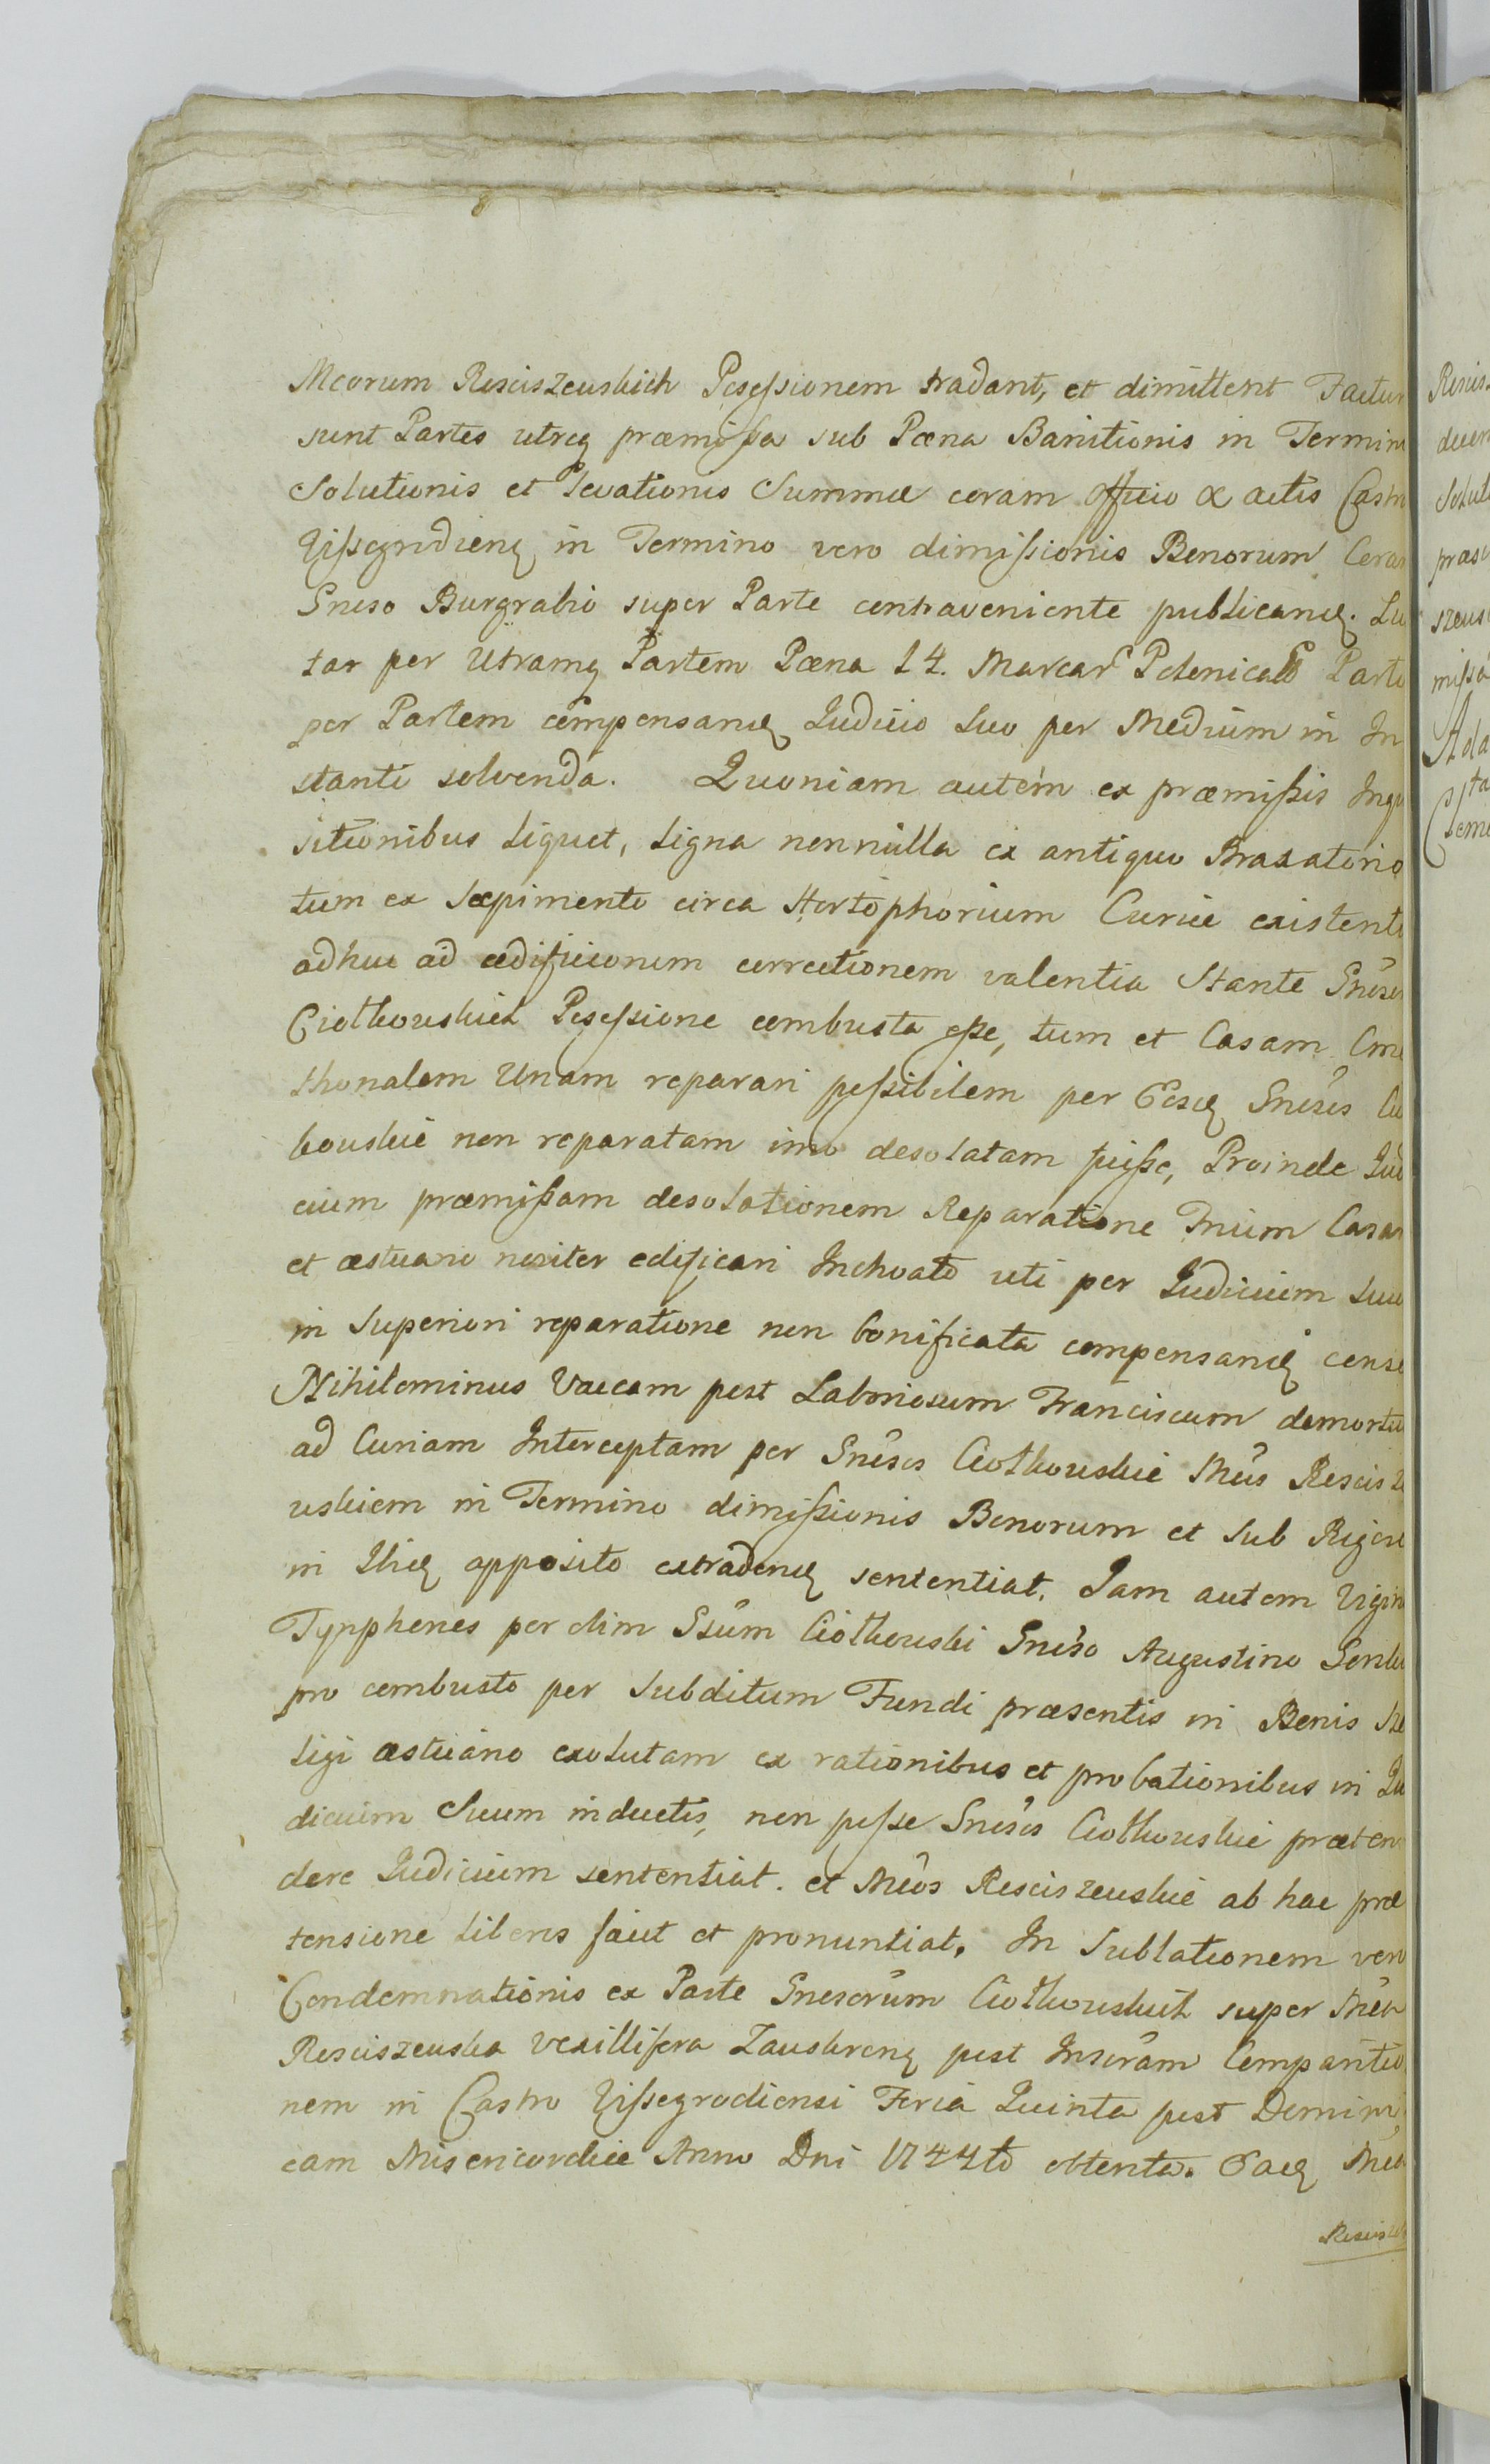 Meorum Resciszewskich Possessionem tradant, et dimittent Factur
sunt Partes utręq præmissa sub Pæna Banitionis in Termin
Solutionis et Levationis Summæ coram Officio & actis Castr
Vissegrodienş in Termino vero dimissionis Bonorum Coram
Gneso Burgrabio super Parte contraveniente publicanđ. Lu
tar per Utramq Partem Pæna 14. Marcar Polonical Parte
per Partem compensanđ Judicio Suo per Medium in In
stanti solvenda. Quoniam autem ex præmissis Inqu
sitionibus liquet, Ligna nonnulla ex antiquo Braxatorio
tum ex Sæpimento circa Hortophorium Curiæ existent
adhuc ad ædificiorum correctionem valentia Stante Gnesor
Ciotkowskich Possessione combusta esse, tum et Casam Cme
thonalem Unam reparari possibilem per Eosđ Gnesos Cio
kowskie non reparatam imo desolatam fuisse, Proinde Jud
cium præmissam desolationem Reparatione Trium Casar
et æstuario noviter edificari Inchoato uti per Judicium Suu
in Superiori reparatione non bonificata compensanđ cense
Nihilominus Vaccam post Laboriosum Franciscum demortu
ad Curiam Interceptam per Gnesos Ciotkowskie Meis Rescisze
wskiem in Termino dimissionis Bonorum et Sub Rigore
in Ibiđ apposito extradenđ sententiat. Jam autem Vigin
Tynphones per olim Gsum Ciotkowski Gneso Augustino
pro combusto per Subditum Fundi præsentis in Bonis Sze
ligi æstuario exolutam ex rationibus et probationibus in Ju
dicium Suum inductis, non posse Gnesos Ciotkowskie præten
dere Judicium sententiat. et Meos Resciszewskie ab hac præ
tensione liberos facit et pronuntiat. In Sublationem vero
Condemnationis ex Parte Gnesorum Ciotkowskich super Mea
Resciszewska Vexillifera Zawskrenş post Inscram Comparitio
nem in Castro Vissegrodiensi Feria Quinta post Domini
cam Misericordiæ Anno Dni 1744to obtentæ. Eađ Mea
Resciszew
Rescis
deven
Solut
præs
szews
missa
Ada